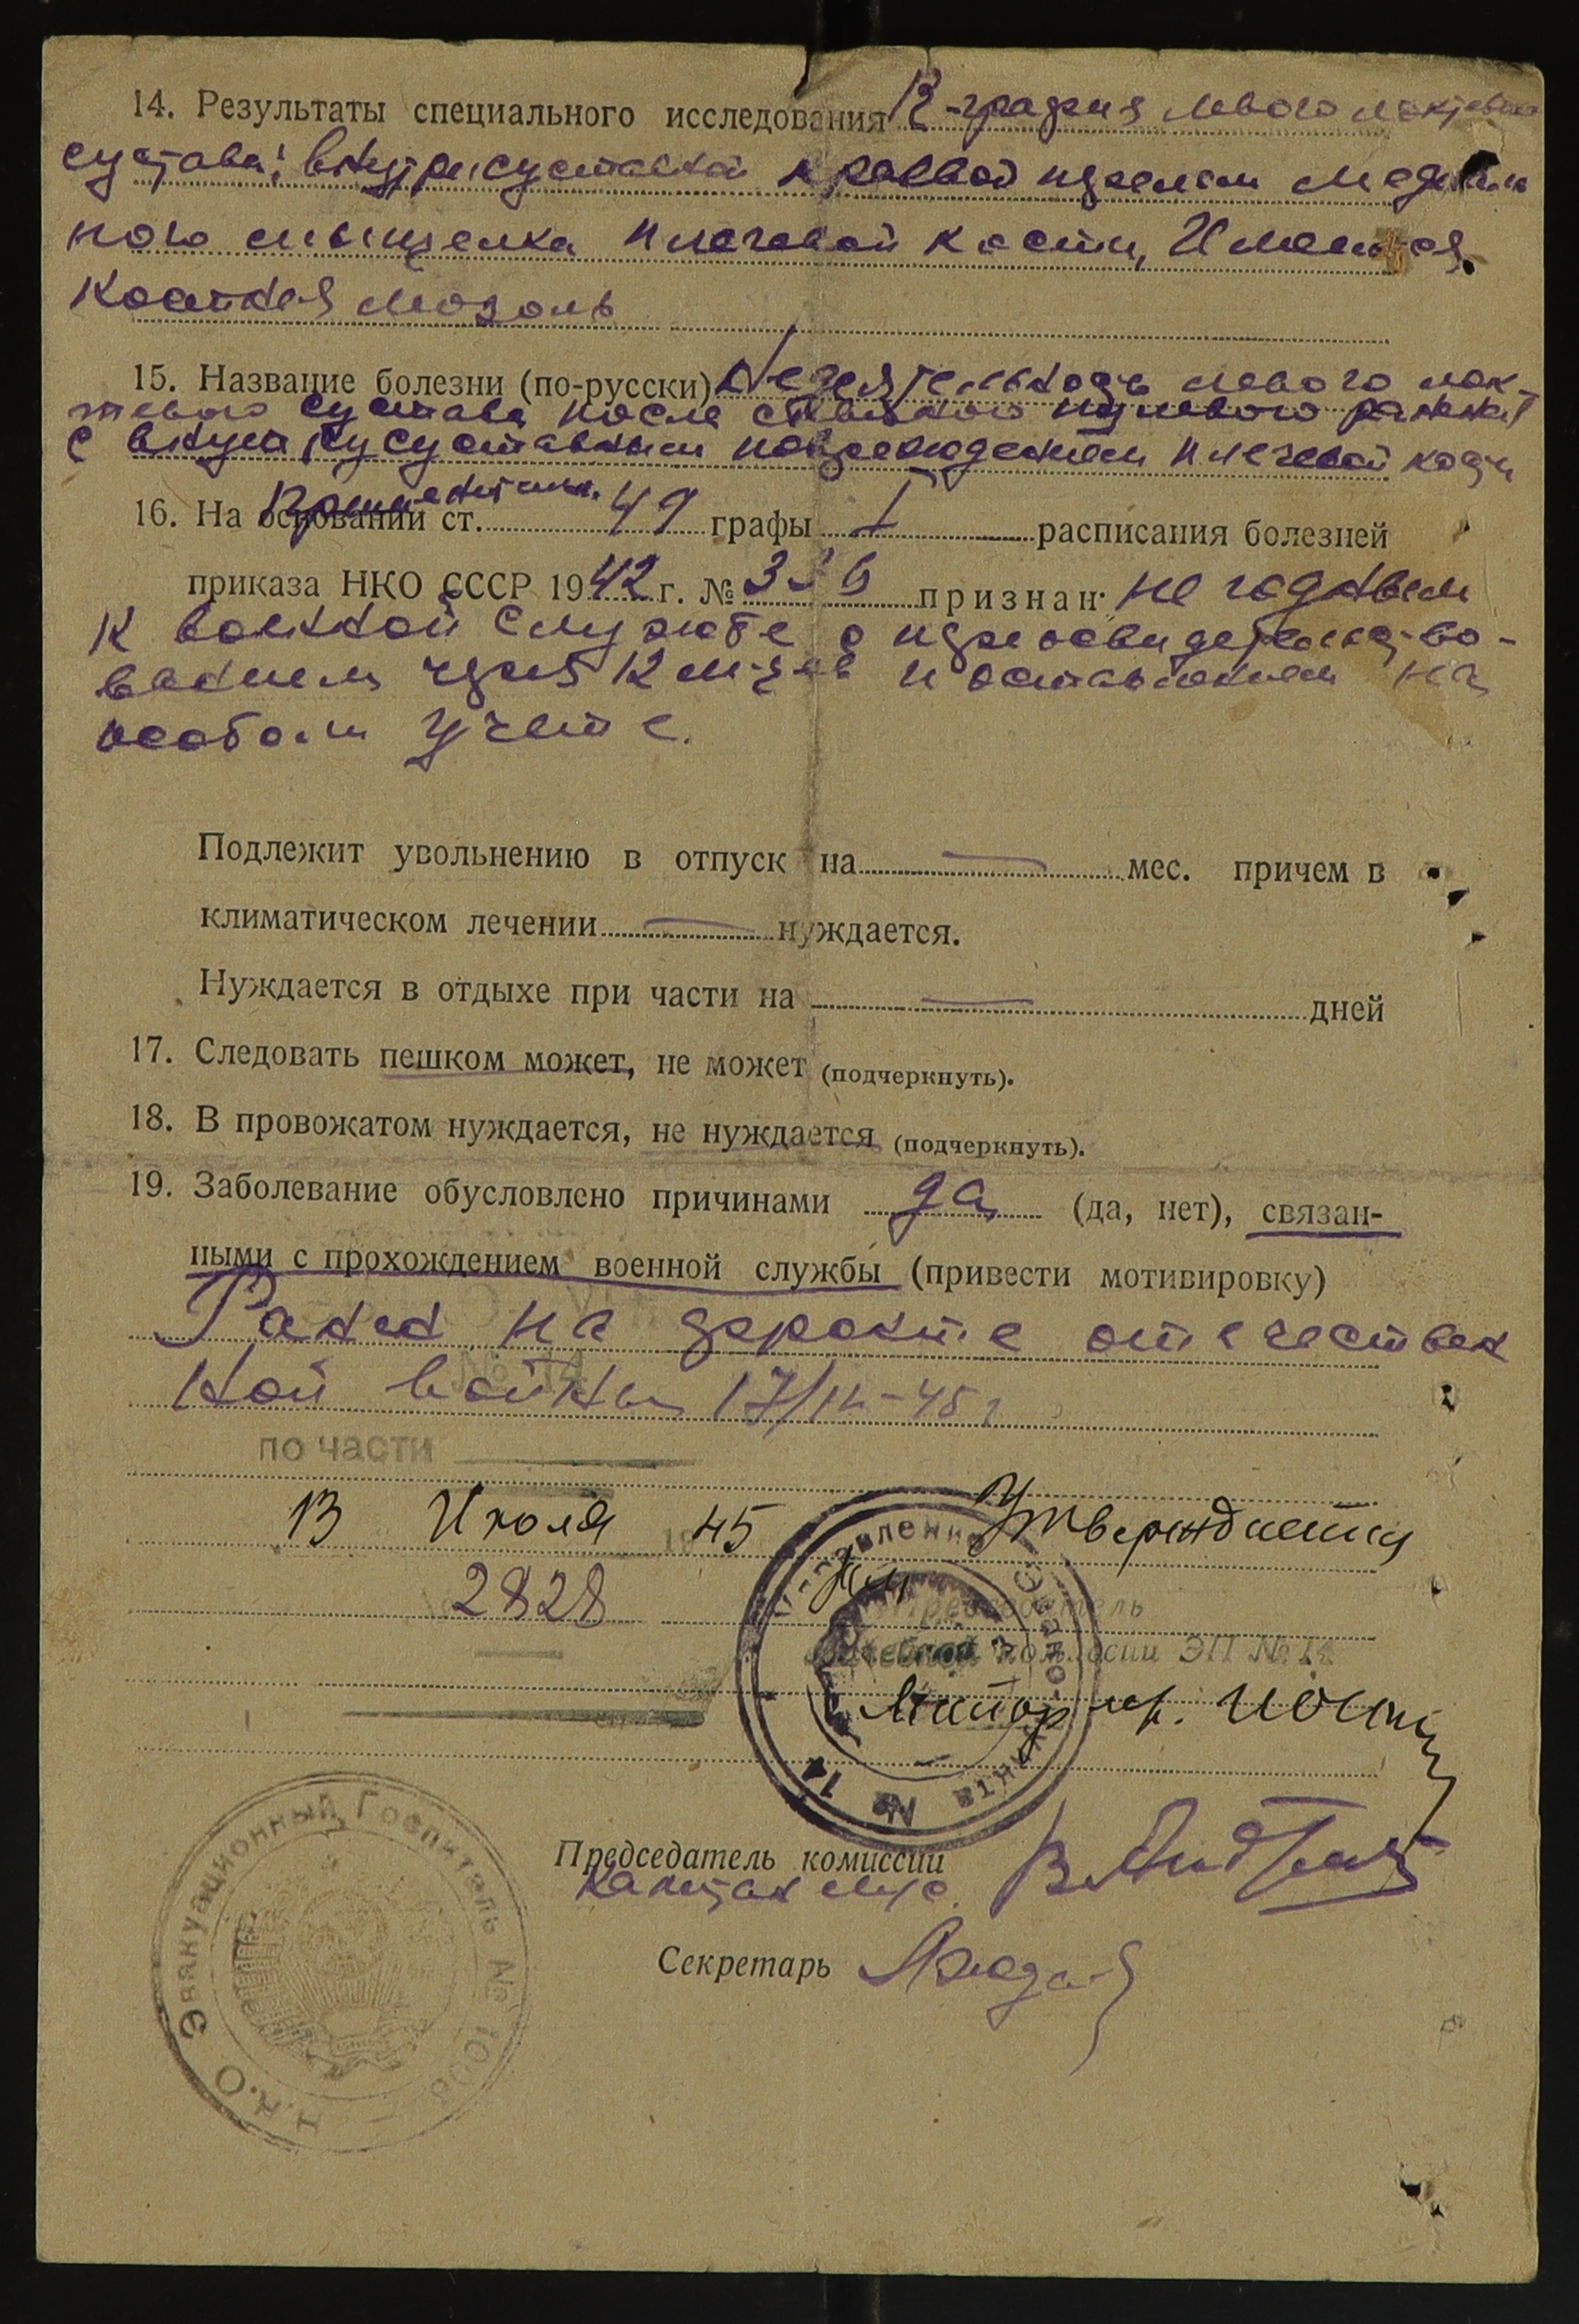 14. Результаты специального исследования R-графия левого локтевого
сустава: внутрисуставной краевой перелом медиаль
ного мыщелка плечевой кости, Имеется
костная мозоль
15. Название болезни (по-русски) Недеятельность левого лок-
тевого сустава после слепого пулевого ранения
с внутрисуставным повреждением плечевой кости
16. На основании ст. 49 графы I расписания болезней
применительно
приказа НКО СССР 1942 г. № 336 признан: не годным
к военной службе с переосвидетельство-
ванием через 12 м-цев и оставлением на
особом учете.
Подлежит увольнению в отпуск на — мес. причем в
климатическом лечении — нуждается.
Нуждается в отдыхе при части на — дней
17. Следовать пешком может, не может (подчеркнуть).
18. В провожатом нуждается, не нуждается (подчеркнуть).
19. Заболевание обусловлено причинами да (да, нет), связан-
ными с прохождением военной службы (привести мотивировку)
Ранен на фронте отечествен
ной войны 17/ -45 г
№ 14
по части
13 Июля 1945 Утверждается
2828
Председатель
врачебной комиссии ЭП № 14
Майор м/с.
Управление
№ 14
Председатель комиссии
капитан м/с.
Секретарь
Н.К.О. Эвакуационный Госпиталь №